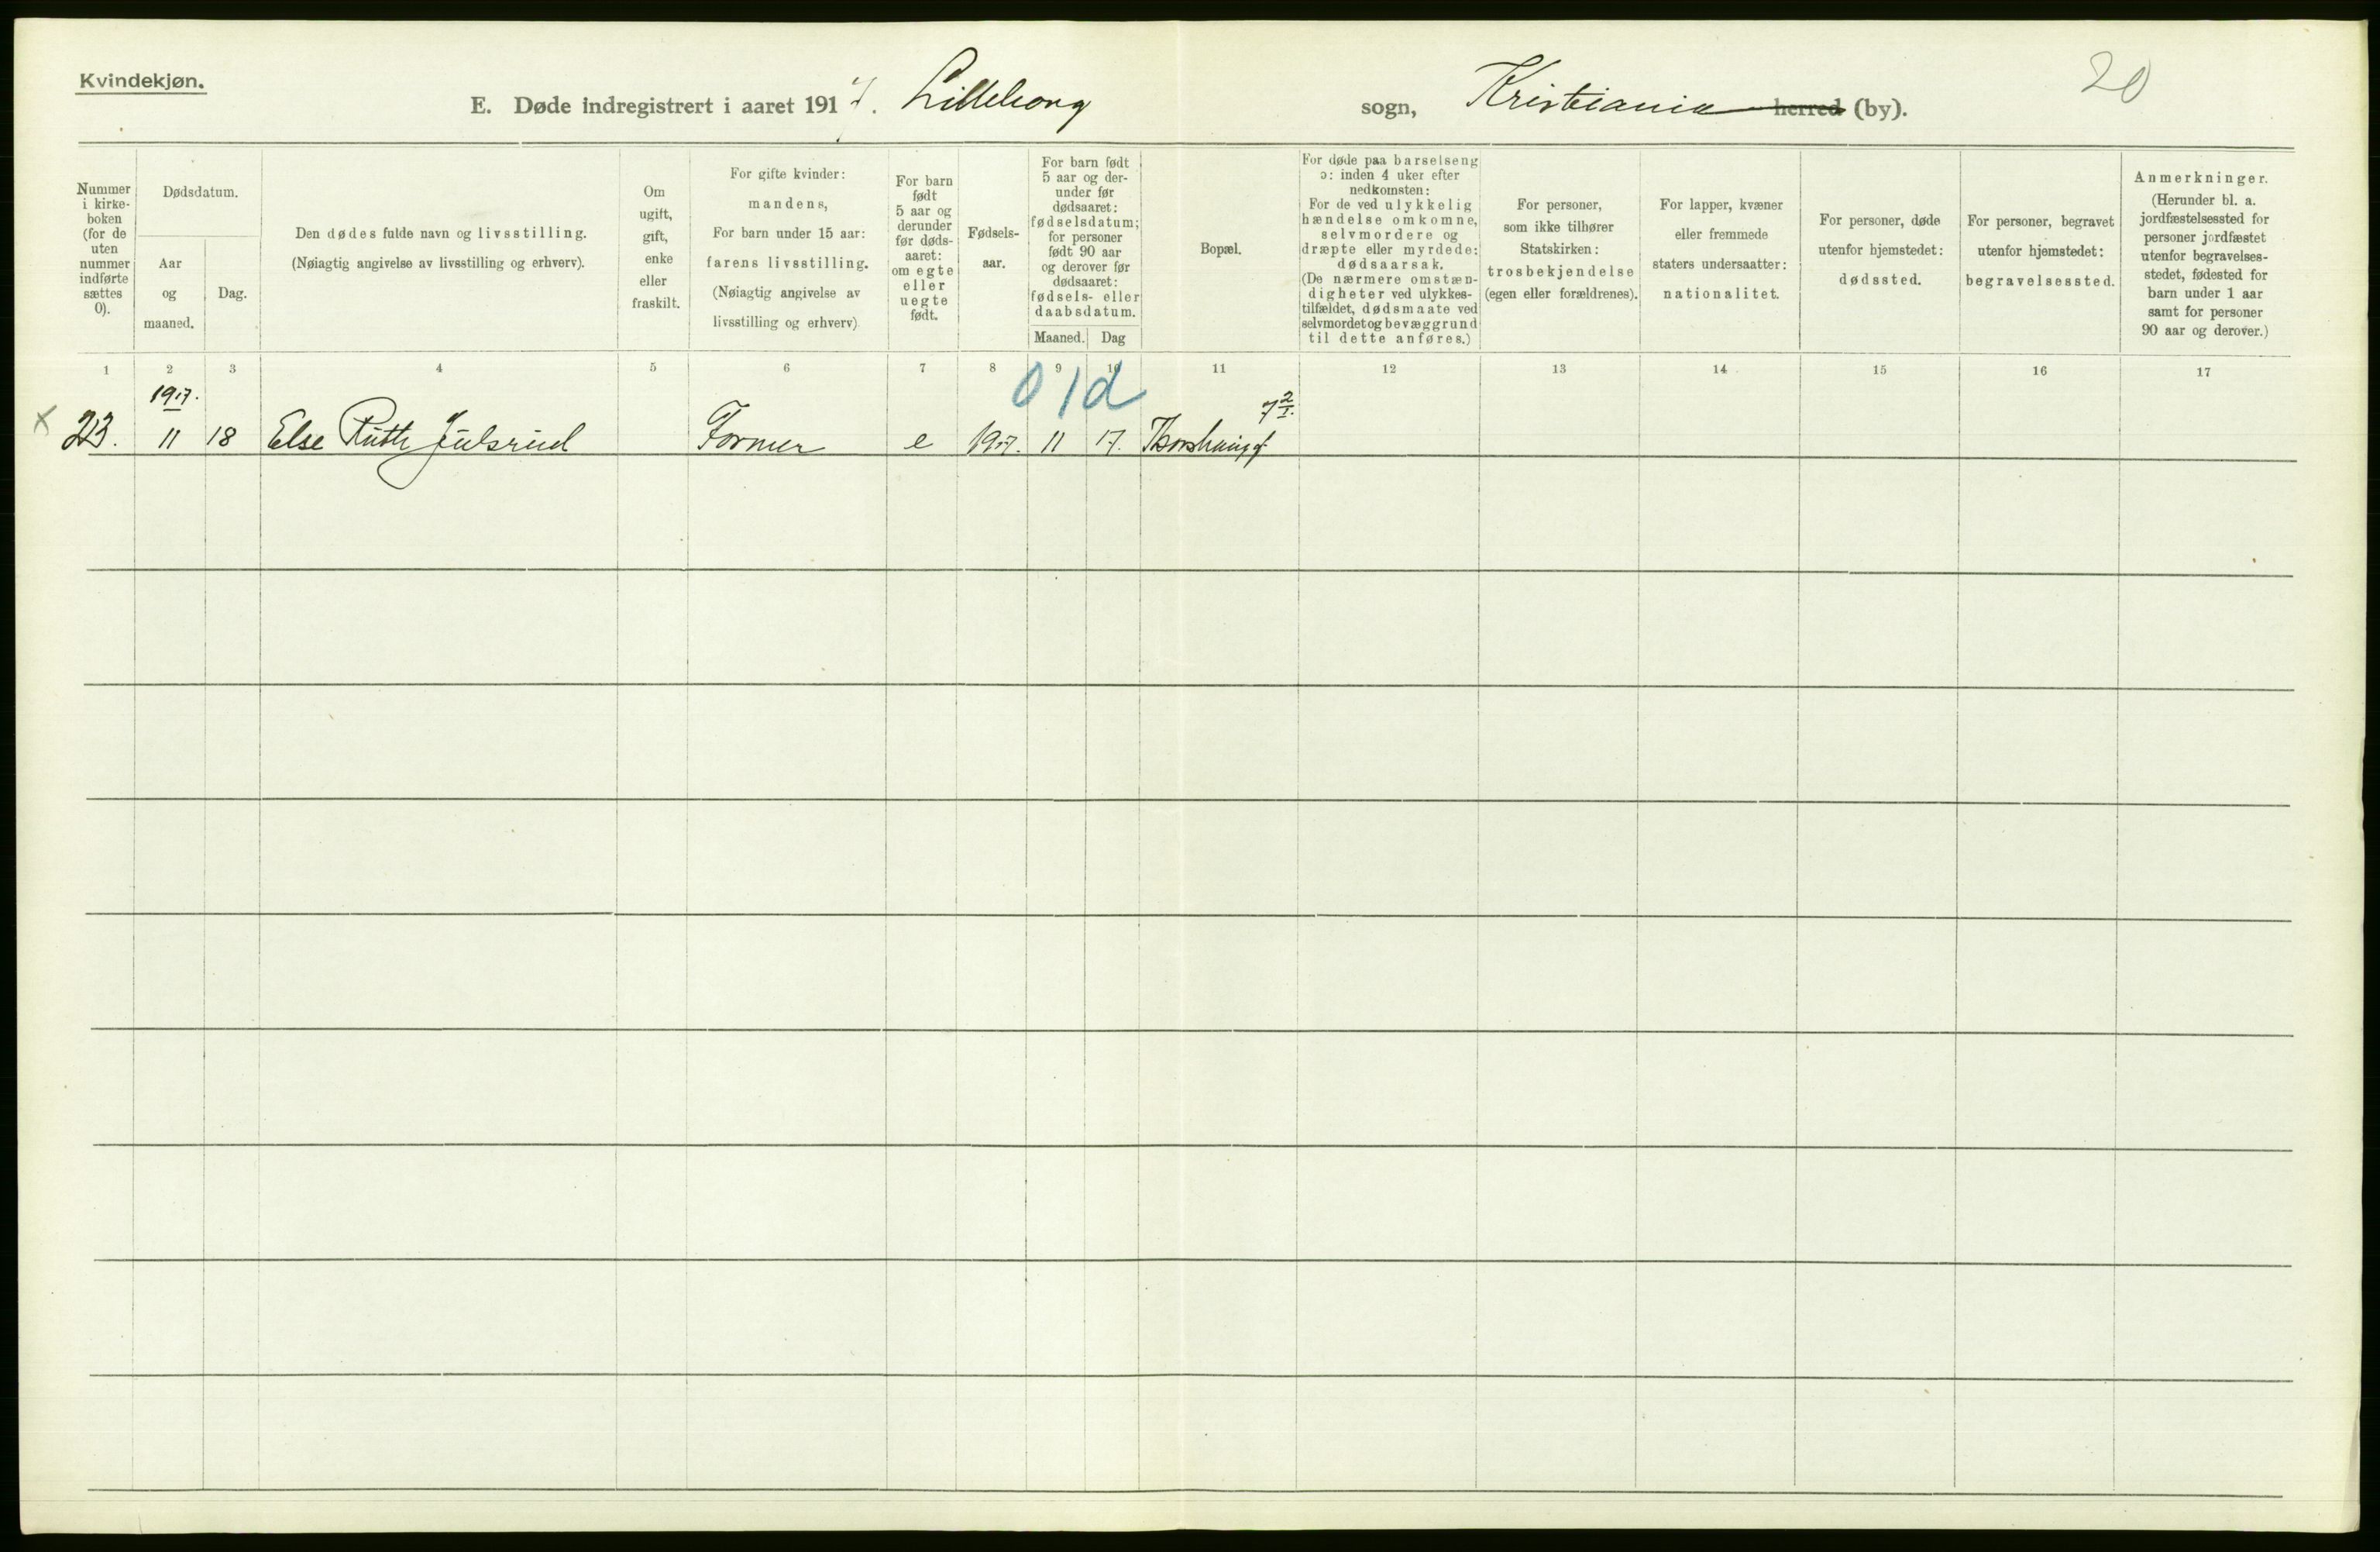 Kvindekjøn.
E. Døde indregistrert i aaret 1917. Lilleborg sogn, Kristiania herred (by).
20
Nummer i kirke-boken (for de uten nummer indførte sættes 0).
Dødsdatum.
Aar og maaned.
Dag.
Den dødes fulde navn og livsstilling.
(Nøiagtig angivelse av livsstilling og erhverv).
Om ugift, gift, enke eller fraskilt.
For gifte kvinder: mandens, For barn under 15 aar: farens livsstilling. (Nøiagtig angivelse av livsstilling og erhverv)
For barn født 5 aar og derunder før døds-aaret: om egte eller uegte født.
Fødsels-aar.
For barn født 5 aar og der-under før dødsaaret: fødselsdatum; for personer født 90 aar og derover før dødsaaret: fødsels- eller daabsdatum.
Maaned. Dag
Bopæl.
For døde paa barselseng ɔ: inden 4 uker efter nedkomsten: For de ved ulykkelig hændelse omkomne, selvmordere og dræpte eller myrdede: dødsaarsak. (De nærmere omstæn-digheter ved ulykkes-tilfældet, dødsmaate ved selvmordet og bevæggrund til dette anføres.)
For personer, som ikke tilhører Statskirken: trosbekjendelse (egen eller forældrenes).
For lapper, kvæner eller fremmede staters undersaatter: nationalitet.
For personer, døde utenfor hjemstedet: dødssted.
For personer, begravet utenfor hjemstedet: begravelsessted.
Anmerkninger. (Herunder bl. a. jordfæstelsessted for personer jordfæstet utenfor begravelses-stedet, fødested for barn under 1 aar samt for personer 90 aar og derover.)
1 2 3 4 5 6 7 8 9 10 11 12 13 14 15 16 17
0 1 d
1917.
x 23. 11 18 Else Ruth Julsrud Former e 1917. 11 17.